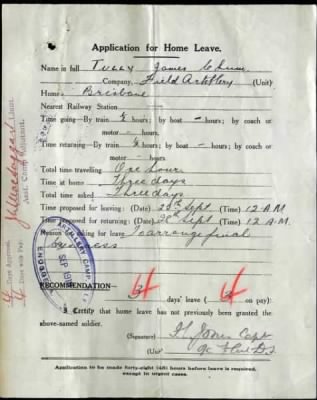 Application for Home Leave.
Name in full Tully James
Company, Field Artillery (Unit)
Home: Brisbane
Nearest Railway Station
Time going—By train ½ hours; by boat - hours; by coach or
motor - hours.
Time returning—By train ½ hours; by boat - hours; by coach or
motor - hours.
Total time travelling One hour
Time at home Three days
Total time asked Three days
Time proposed for leaving: (Date) Sept. (Time) 12 A.M
Time proposed for returning: (Date) Sept (Time) 12 A.M.
Reason for asking for leave To arrange final
business
ARTILLERY CAMP
SEP
ENOGGERA
RECOMMENDATION— 4 days' leave ( 4 on pay):
I Certify that home leave has not previously been granted the
above-named soldier.
(Signature) Capt
(Unit)
Application to be made forty-eight (48) hours before leave is required,
except in urgent cases.
4 Days Approved.
4 Days with Pay.
Lieut.
Asst. Camp Adjutant.